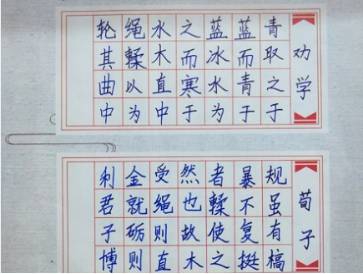 劝学
青取之于
蓝而青于
蓝冰水为
之而寒于
水木直中
绳輮以为
轮其曲中
荀子
规虽有槁
暴不复挺
者輮使之
然也故木
受绳则直
金就砺则
利君子博